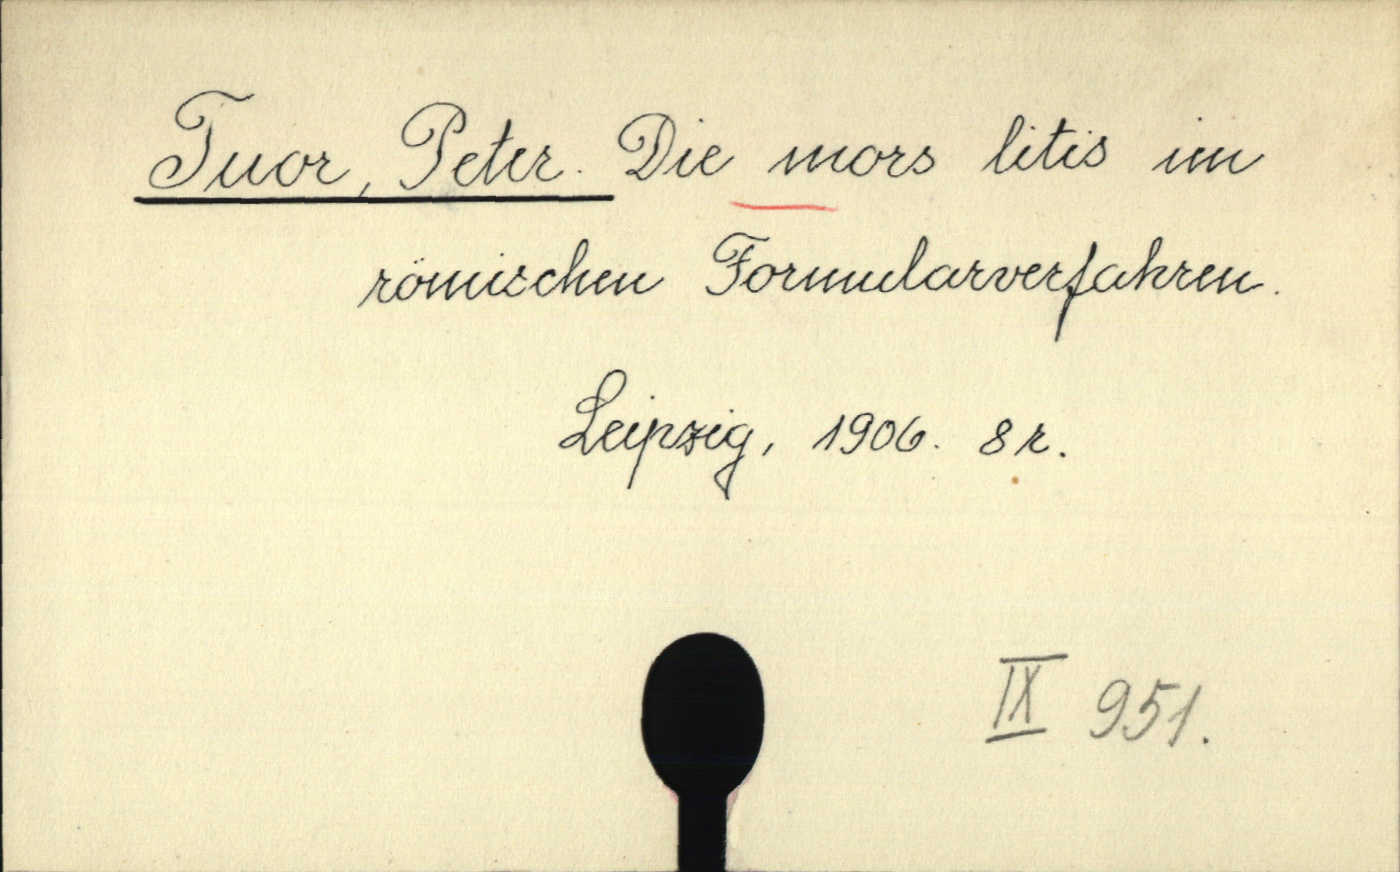 Tuor, Peter. Die mors litis im
römischen Formularverfahren.
Leipzig, 1906. 8 r.
IX 951.